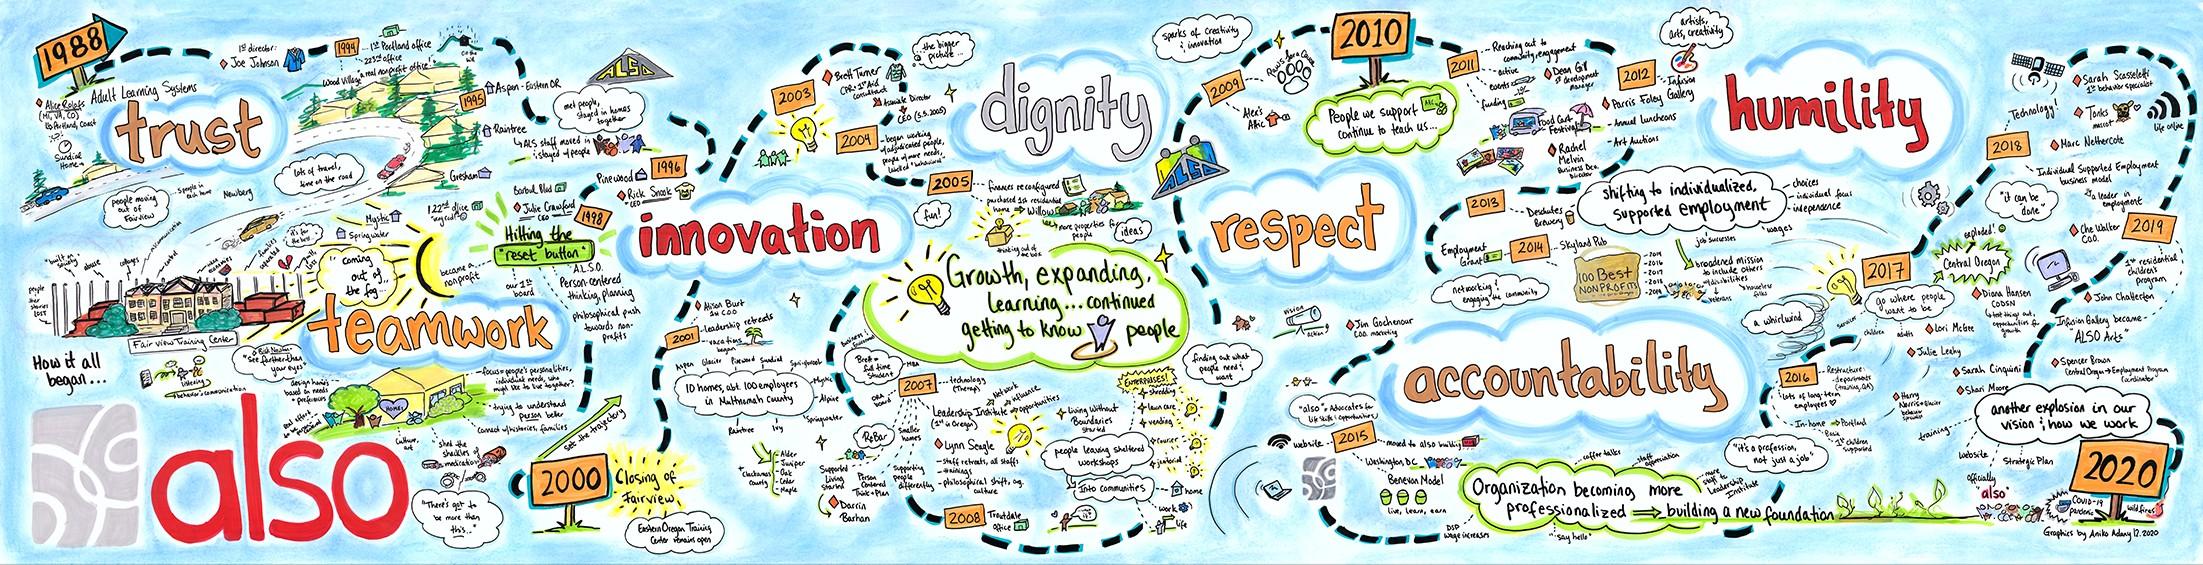 1988
Adult Learning Systems
Alice Rolofs
(MI, VA, CO)
to Portland, Coast
Sundial
Home
1st director:
Joe Johnson
trust
1994
1st Portland office
223rd office
a real nonprofit office!
Wood Village
1995
Aspen - Eastern OR
Raintree
Gresham
lots of travel,
time on the road
people moving
out of
Fairview
5 people in
each home
Newberg
Mystic
Springwater
122nd office
ALSO
met people,
stayed in homes
together
ALS staff moved in
& stayed w/ people
1996
Pinewood
Rick Snook
CEO
Barbur Blvd
Julie Crawford
CEO
1998
Hitting the
"reset button"
became a
nonprofit
our 1st
board
A.L.S.O.
Person centered
thinking, planning
philosophical push
towards non-
profits
it's for
the best
"coming
out of
the fog..."
abuse
cottages
control
people
their
stories
LOST
Fairview Training Center
How it all
began...
listening
behavior = communication
"see further than
your eyes"
teamwork
design homes
based on needs
& preferences
HOME
focus on people's personalities,
individual needs, who
might like to live together?
trying to understand
person better
connect w/ histories, families
culture,
art
shed the
shackles of
medication
"There's got to
be more than
this..."
set the trajectory
also
2000
Closing of
Fairview
Eastern Oregon Training
Center remains open
innovation
Alison Burt
1st C.O.O.
2001
Leadership retreats
vacations
began
Aspen
Glacier
Pinewood
Sundial
Springbrook
Mystic
Alpine
Springwater
Ivy
Raintree
10 homes, abt. 100 employees
in Multnomah County
Clackamas
county
Alder
Juniper
Oak
Cedar
Maple
2003
Brett Turner
CPR + 1st Aid
consultant
the bigger
picture
Associate Director
CEO (5.5.2005)
2004
began working
w/ adjudicated people,
people w/ more needs,
labeled "behavioral"
2005
finances reconfigured
purchased 1st residential
home
Willow
more properties for
people
fun!
thinking out of
the box
ideas
dignity
Growth, expanding,
learning... continued
getting to know people
Brett =
full time
student
MBA
2007
technology
(Therap)
Leadership Institute
(1st in Oregon)
network
influence
opportunities
ORA
board
ReBar
smaller
homes
Supported
Living
started
Person
Centered
Think + Plan
Supporting
people
differently
Darrin
Barhan
Lynn Seagle
staff retreats, all staffs
trainings
philosophical shift, org.
culture
2008
Troutdale
office
Living Without
Boundaries
started
people leaving sheltered
workshops
into communities
ENTERPRISES!
shredding
lawn care
vending
courier
janitorial
home
work
life
finding out what
people need &
want
sparks of creativity
& innovation
2009
Alex's
Attic
Paws Are a Cause
2010
People we support
continue to teach us...
respect
2011
Reaching out to
community, engagement
active
events
funding
Dean Gill
1st development
manager
Food Cart
Festival
Rachel
Melvin
Business Dev.
Director
2012
Infusion
Parris Foley Gallery
Annual Luncheons
Art Auctions
artists,
arts, creativity
humility
2013
Deschutes
Brewery
Employment
Grant
2014
Skyland Pub
networking &
engaging the community
100 Best
NONPROFITS
shifting to individualized,
supported employment
choices
individual focus
independence
wages
job successes
broadened mission
to include others
w/ disabilities
houseless
folks
veterans
vision
action
Jim Gochenour
C.O.O. marketing
accountability
"also" = Advocates for
Life Skills & Opportunities
website
2015
moved to also building
Washington D.C.
Benevon Model
live, learn, earn
coffee talks
staff
appreciation
more
staff to
Leadership
Institute
Organization becoming more
professionalized ⇒ building a new foundation
DSP
wage increases
"say hello"
"it's a profession,
not just a job"
a whirlwind
2016
Restructure:
departments
(training, QA)
lots of long-term
employees
In-home → Portland
Bend
1st children
supported
2017
go where people
want to be
children
adults
Lori McGee
Julie Leahy
Sarah Cinquini
Shari Moore
training
exploded!
Central Oregon
Diana Hansen
COBSN
test things out,
opportunities for
growth
2018
Technology!
Sarah Scasseletti
1st behavior specialist
Tonks
mascot
life online
Marc Nethercote
Individual Supported Employment
business model
a leader in
employment
"it can be
done"
2019
Che Walker
C.O.O.
1st residential
children's
program
John Chatterton
Infusion Gallery became
ALSO Arts
Spencer Brown
Central Oregon → Employment Program
Coordinator
another explosion in our
vision & how we work
website
Strategic Plan
officially
"also"
2020
COVID-19
pandemic
wildfires
Graphics by Aniko Adany 12.2020